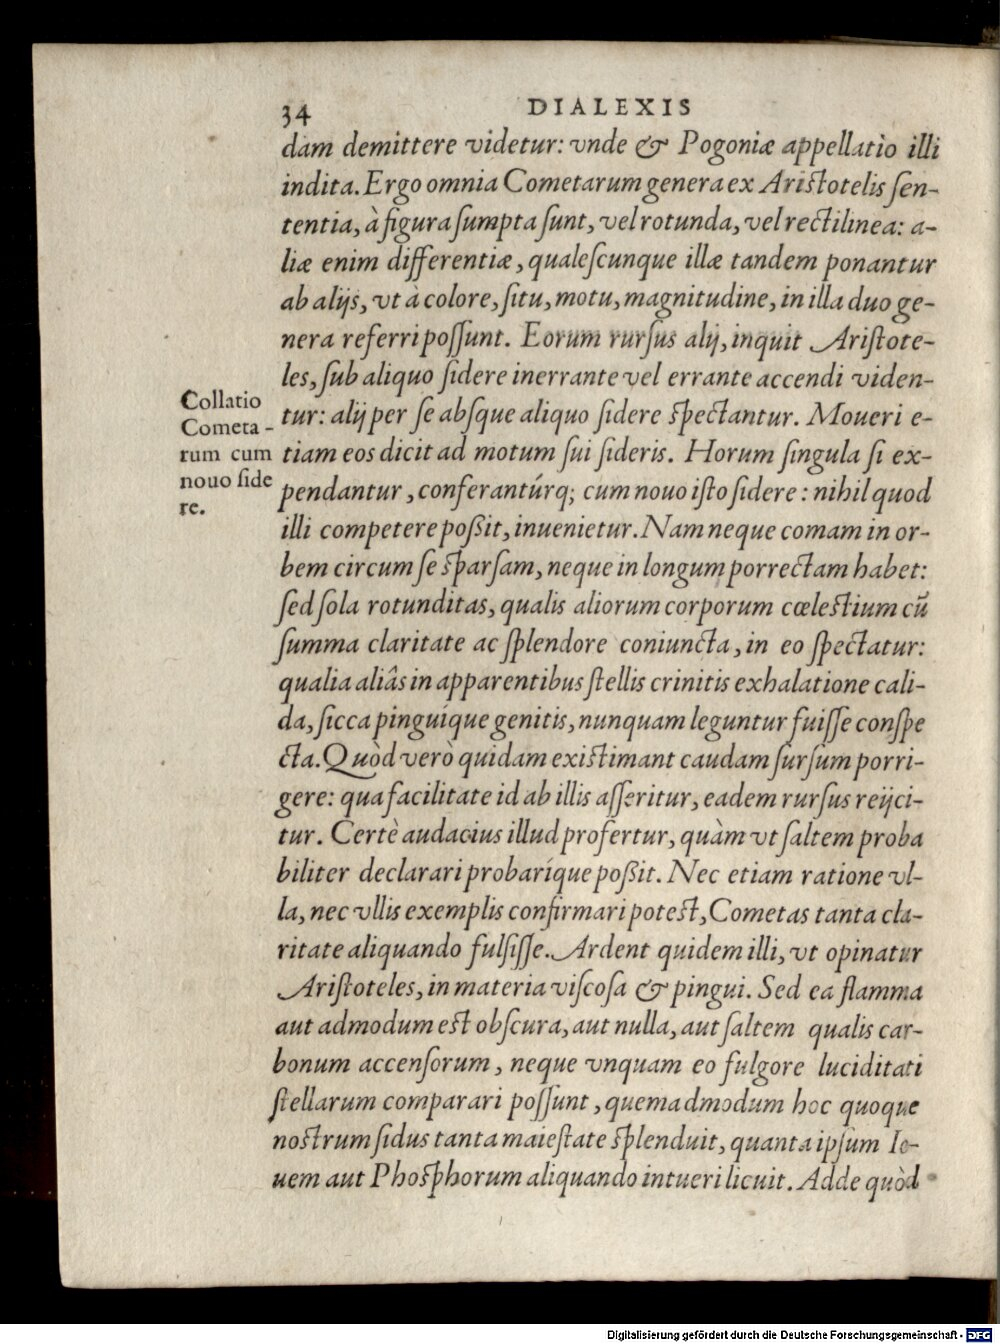 34
DIALEXIS
dam demittere videtur: vnde & Pogoniæ appellatìo illi
indita. Ergo omnia Cometarum genera ex Aristotelis ſen-
tentia, à figura ſumpta ſunt, vel rotunda, vel rectilinea: a-
liæ enim differentiæ, qualeſcunque illæ tandem ponantur
ab alijs, vt à colore, ſitu, motu, magnitudine, in illa duo ge-
nera referri poſſunt. Eorum rurſus alij, inquit Ariſtote-
les, ſub aliquo ſidere inerrante vel errante accendi viden-
tur: alij per ſe abſque aliquo ſidere ſpectantur. Moueri e-
tiam eos dicit ad motum ſui ſideris. Horum ſingula ſi ex-
pendantur, conferantúrq; cum nouo iſto ſidere: nihil quod
illi competere poßit, inuenietur. Nam neque comam in or-
bem circum ſe ſparſam, neque in longum porrectam habet:
ſed ſola rotunditas, qualis aliorum corporum cœlestium cū
ſumma claritate ac ſplendore coniuncta, in eo ſpectatur:
qualia aliâs in apparentibus ſtellis crinitis exhalatione cali-
da, ſicca pinguíque genitis, nunquam leguntur fuiſſe conſpe
cta. Quòd verò quidam existimant caudam ſurſum porri-
gere: qua facilitate id ab illis aſſeritur, eadem rurſus reijci-
tur. Certè audacius illud profertur, quàm vt ſaltem proba
biliter declarari probaríque poßit. Nec etiam ratione vl-
la, nec vllis exemplis confirmari potest, Cometas tanta cla-
ritate aliquando fulſiſſe. Ardent quidem illi, vt opinatur
Ariſtoteles, in materia viſcoſa & pingui. Sed ea flamma
aut admodum est obſcura, aut nulla, aut ſaltem qualis car-
bonum accenſorum, neque vnquam eo fulgore luciditati
ſtellarum comparari poſſunt, quemadmodum hoc quoque
nostrum ſidus tanta maieſtate ſplenduit, quanta ipſum Io-
uem aut Phoſphorum aliquando intueri licuit. Adde quòd
Collatio
Cometa-
rum cum
nouo ſide
re.
Digitalisierung gefördert durch die Deutsche Forschungsgemeinschaft - DFG